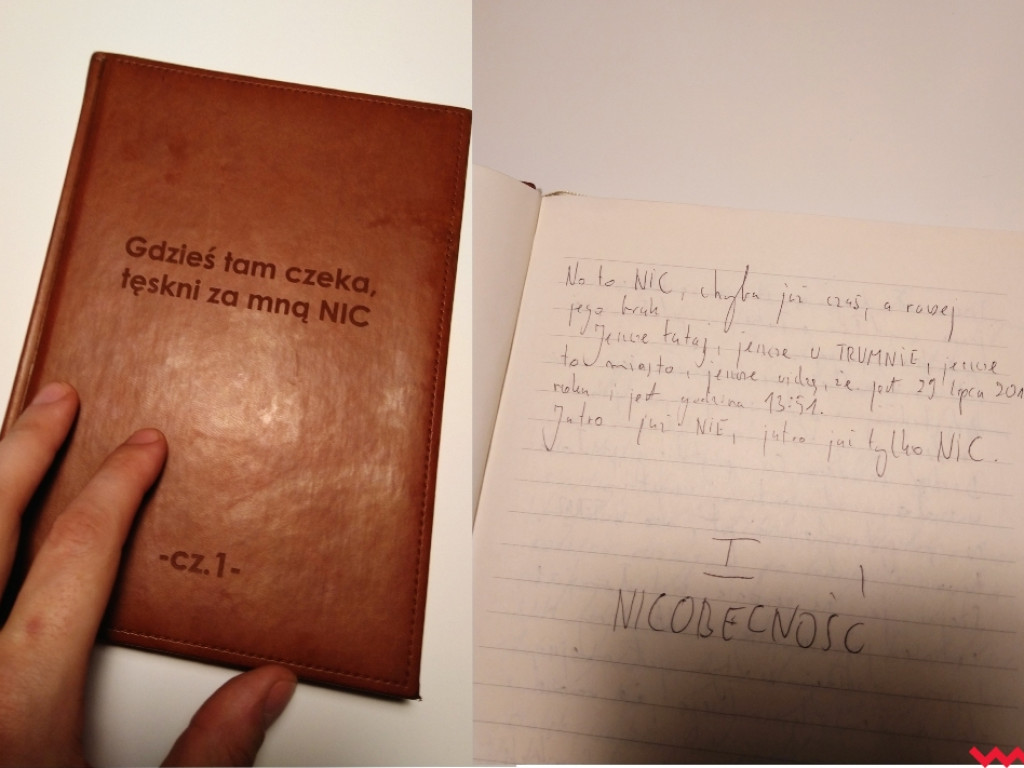 Gdzieś tam czeka,
tęskni za mną NIC
-cz.1-
No to NIC, chyba już czas, a raczej
jego brak
Jeszcze tutaj, jeszcze w TRUMNIE, jeszcze
to miasto, jeszcze widzę, że jest 29 lipca 201
roku i jest godzina 13:51.
Jutro już NIE, jutro już tylko NIC.
I
NICOBECNOŚĆ